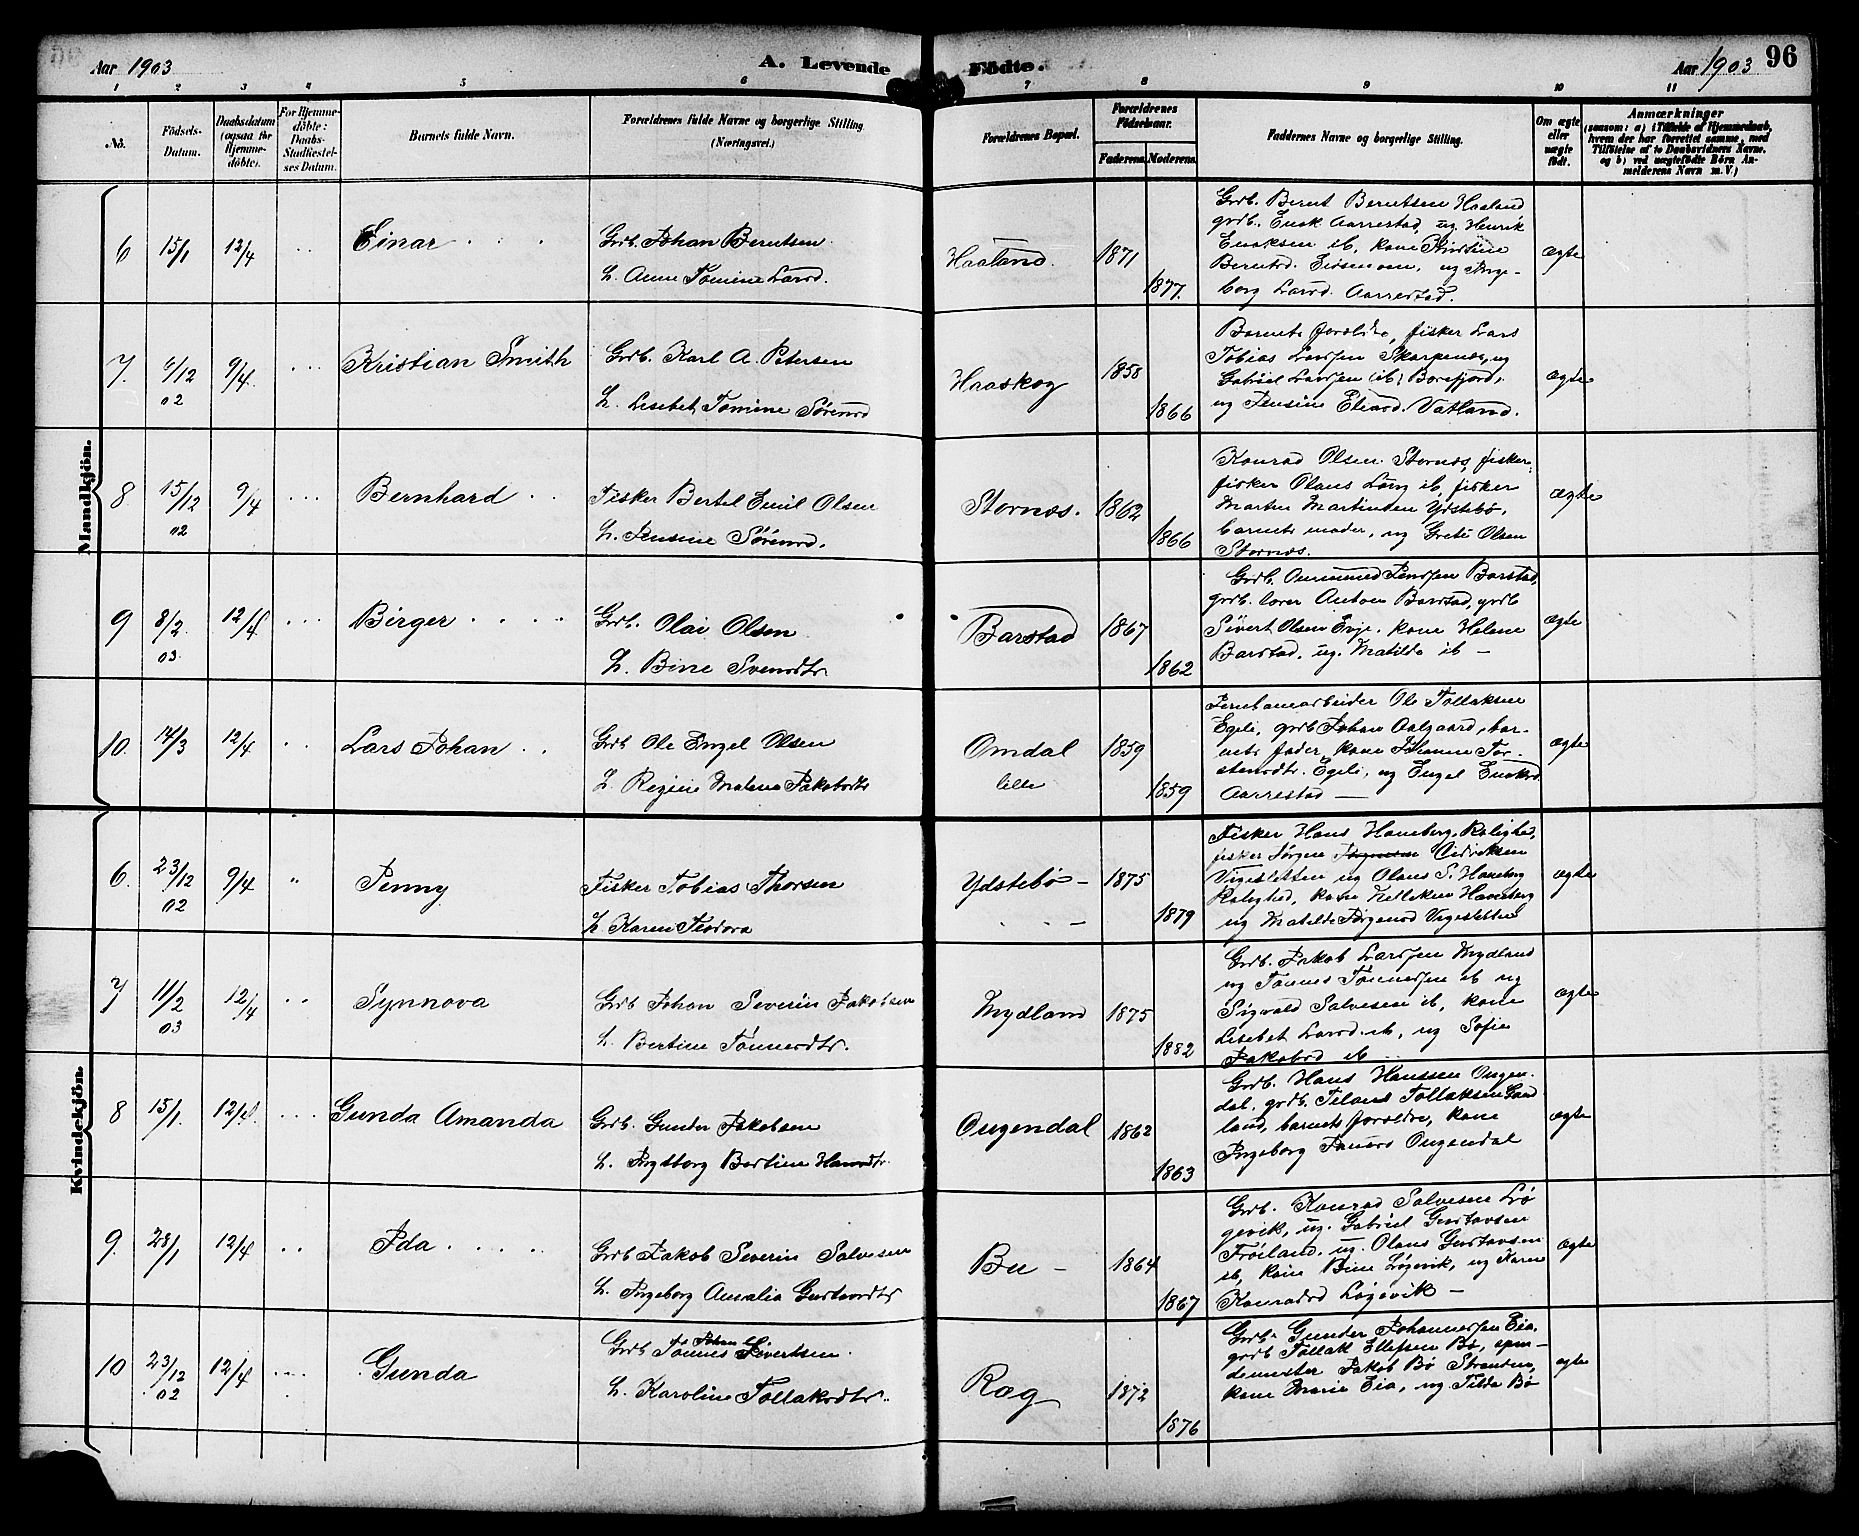 Aar 1903
A. Levende Födte.
Aar 1903 96
1 2 3 4 5 6 7 8 9 10 11
No.
Födsels-
Datum.
Daabsdatum
(ogsaa for
Hjemme-
döbte).
For Hjemme-
döbte:
Daabs-
Stadfæstel-
ses Datum.
Barnets fulde Navn.
Forældrenes fulde Navne og borgerlige Stilling
(Næringsvei.)
Forældrenes Bopæl.
Forældrenes
Födselsaar.
Faderens. Moderens.
Faddernes Navne og borgerlige Stilling.
Om ægte
eller
uægte
födt.
Anmærkninger
(saasom: a) i Tilfælde af Hjemmedaab,
hvem der har forrettet samme, med
Tilföielse af to Daabsvidners Navne.
og b) ved uægtefödte Börn An-
melderens Navn m. V.)
Mandkjön.
6 15/1 12/4 Einar
Grdb. Johan Berntsen
h. Anne Tomine Larsd.
Haaland. 1871 1877.
Grdb. Bernt Berntsen Haaland
grdb. Enok Aarrestad, ug. Henrik
Enoksen ib, kone
Berntsd. , ug Inge-
borg Larsd. Aarrestad.
ægte
7. 6/12 02 9/4. Kristian Smith
Grdb. Karl A. Petersen
h. Lisebet Tomine Sörensd
Haaskog 1858 1866
Barnets foreldre, fisker Lars
Tobias Larssen Skarpenes, ug
Gabriel Larssen (ib) Borefjord,
ug Jensine Eliasd. Vatland.
ægte
8. 15/12 02 9/4 Bernhard
Fisker Bertel Emil Olsen
h. Jensine Sörensd.
Stornæs. 1862 1866
Konrad Olsen Stornæs, fisker,
fisker Olaus Lång ib, fisker
Martin Martinsen Ydstebö,
barnets moder, ug Grete Olsen
Stornæs.
ægte
9 8/2 03. 12/4 Birger
Grdb. Olai Olsen
h. Bine Svensdtr
Barstad 1867 1862
Grdb. Ommund Jenssen Barstad,
grdb. Anton Barstad, grdb
Sivert Olsen Evje, kone Helene
Barstad, ug. Matilde ib —
ægte
10. 14/3 12/4 Lars Johan
Grdb Ole Engel Olsen
h. Regine Malene Jakobsdtr
Omdal
lille
1859 1859
Jernbanearbeider Ole Tollaksen
Egeli, grdb Johan Aalgaard, bar-
nets fader, kone Johanne Tor-
stensdtr. Egeli, ug Engel Enoksd
Aarrestad —
ægte
Kvindekjön.
6. 23/12 02 9/4 Jenny
Fisker Tobias Thorsen
h. Karen Teodora
Ydstebö — 1875 1879
Fisker Hans Haneberg, Rolighed,
fisker Jörgen Didriksen
Vigesletten ug Olaus S. Haneberg
Rolighed, kone Haneberg
ug Matilde Jörgensd Vigesletten
ægte
7 11/2 03 12/4 Synnova
Grdb Johan Severin Jakobsen
h. Bertine Tönnesdtr.
Mydland 1875 1882
Grdb. Jakob Larssen Mydland
ug Tönnes Tönnessen ib ug
Sigvald Salvesen ib, kone
Lisebet Larsd. ib, ug Sofie
Jakobsd ib
ægte
8 15/1. 12/4. Gunda Amanda
Grdb. Gunder Jakobsen
h. Ingeborg Bertine Hansdtr.
Ougendal 1862 1863
Grdb. Hans Hanssen Ougen-
dal, grdb. Tollaksen
land, barnets foreldre, kone
Ingeborg Ougendal
ægte
9. 28/1 12/4 Ida
Grdb Jakob Severin Salvesen
h. Ingeborg Amalia Gustavsdtr
Bu — 1864 1867
Grdb. Konrad Salvesen Lö-
gevik, ug. Gabriel Gustavsen
Fröiland, ug. Olaus Gustavsen
ib, kone Bine Lögevik, ug Karen
Konradsd Lögevik —
ægte
10 23/12 02 12/4 Gunda
Grdb Tönnes Johan Sivertsen
h. Karoline Tollaksdtr.
Rag 1872 1876
Grdb. Gunder Johannessen Eia,
grdb Tollak Ellefsen Bö,
Jakob Bö Stranden,
kone Marie Eia, ug. Tilda Bö
ægte